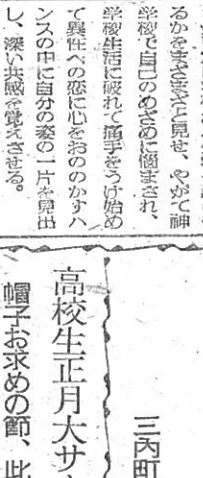 るかをまざまざと見せ、やがて神
学校で自己のめざめに悩まされ、
学校生活に破れて痛手をうけ始め
て異性への恋に心をおののかすハ
ンスの中に自分の姿の一片を見出
し、深い共感を覚えさせる。
三内町
高校生正月大サ
帽子お求めの節、此